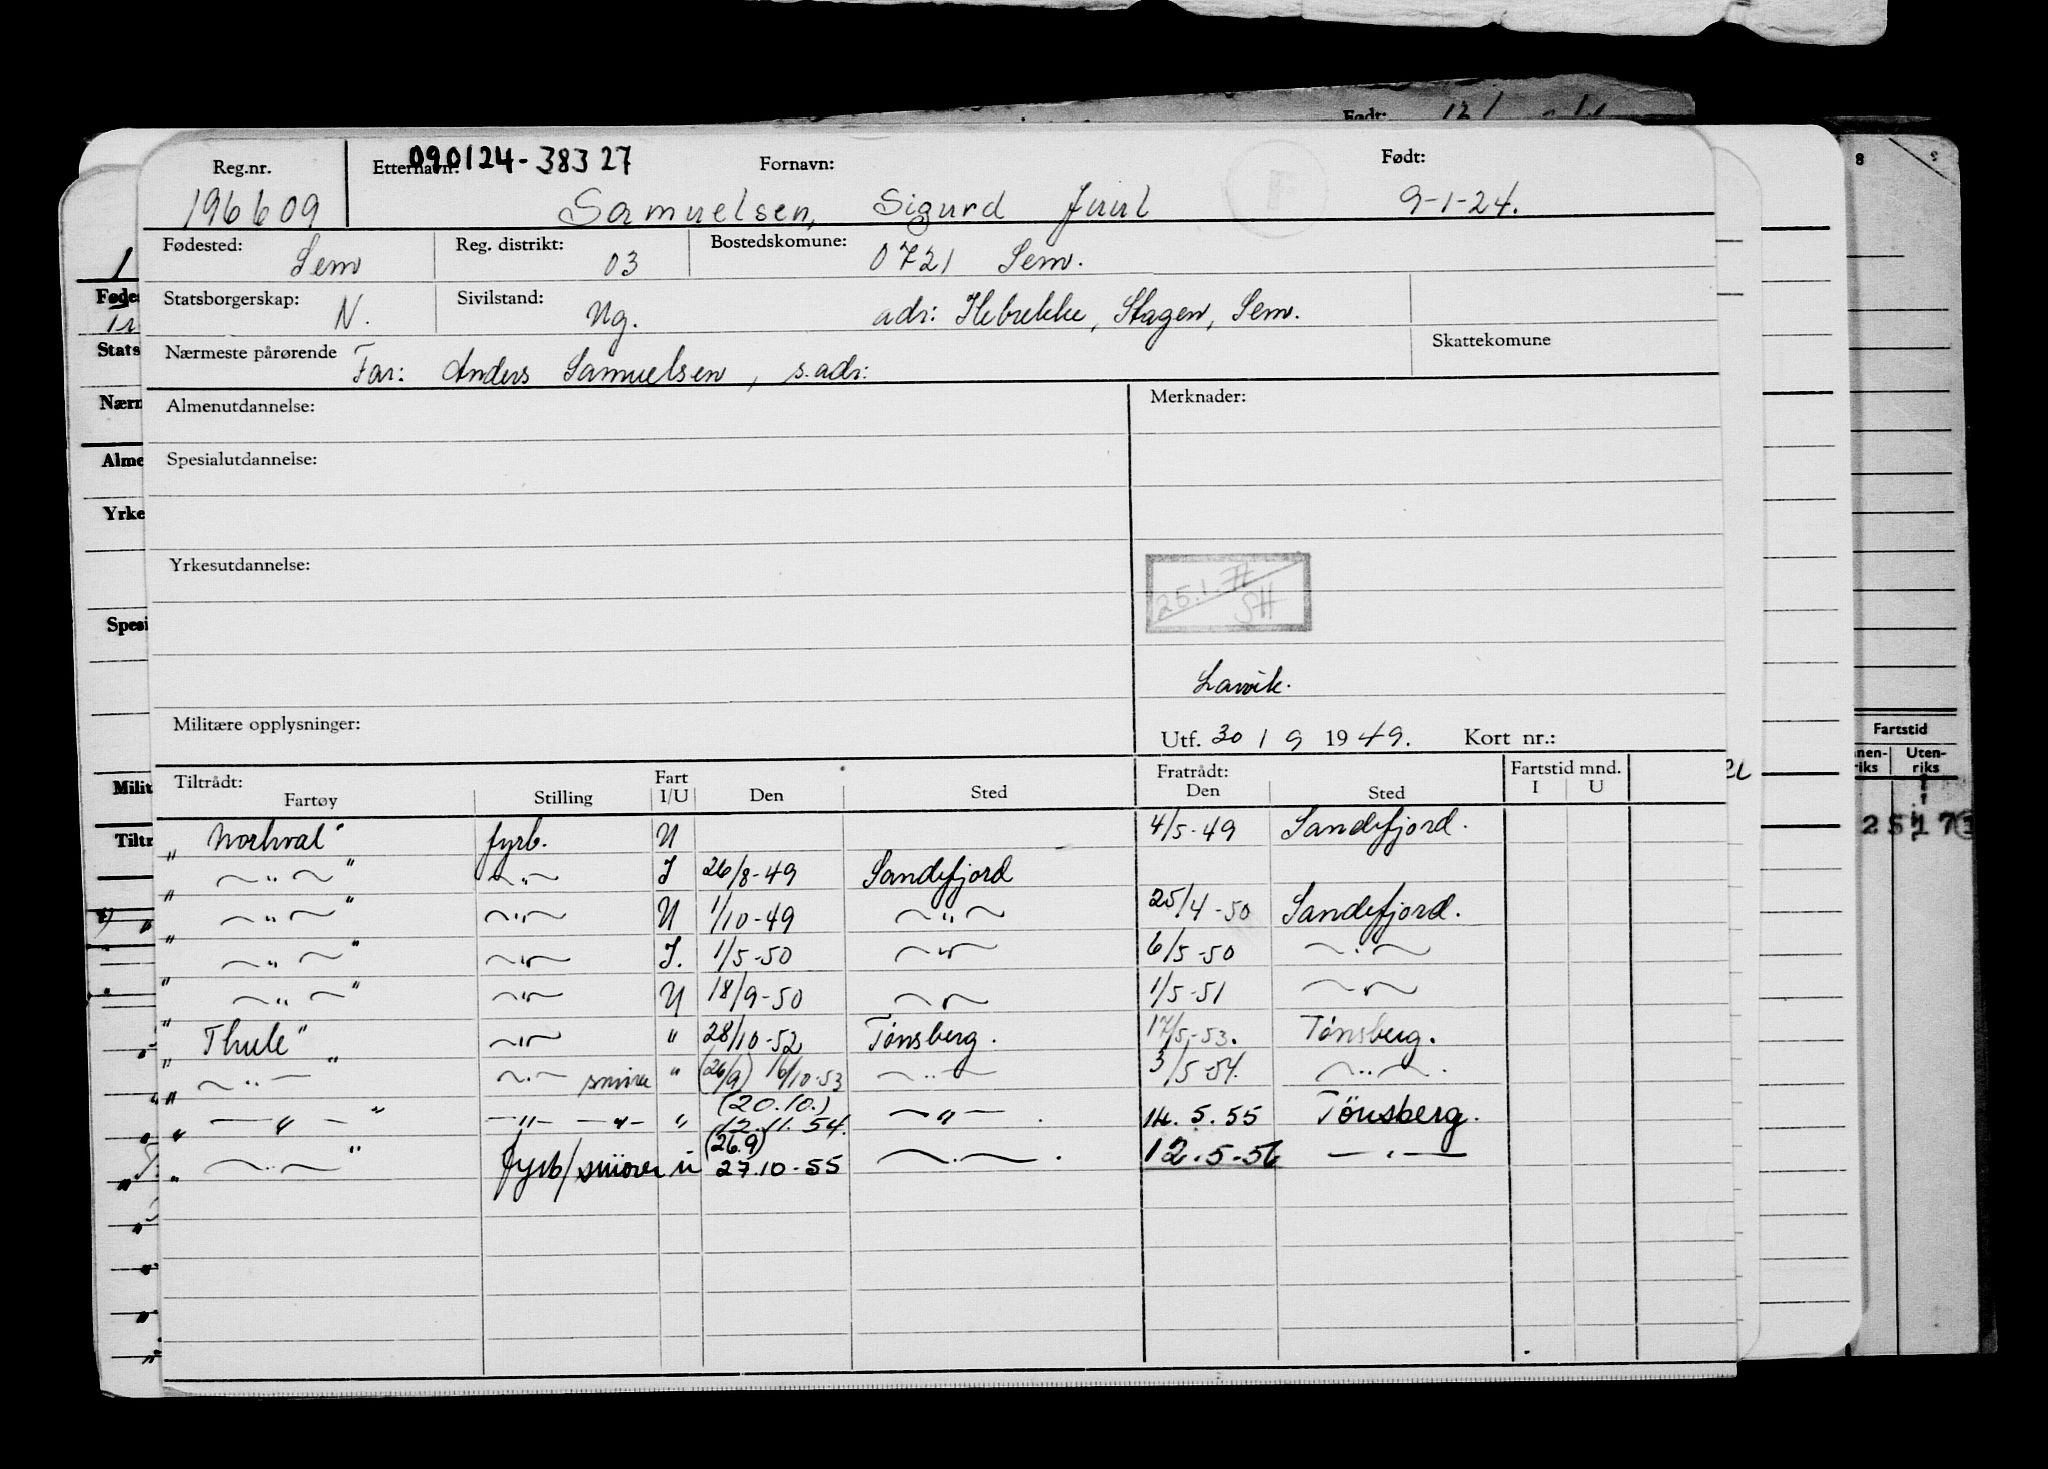 Født:
Reg.nr. Etternavn: 090124-38327 Fornavn: Født:
196609 Samuelsen, Sigurd Juul 9-1-24.
Fødested: Sem Reg. distrikt: 03 Bostedskomune: 0721 Sem.
Statsborgerskap: N. Sivilstand: Ug. adr: Ilebrekke, Slagen, Sem.
Nærmeste pårørende Far: Anders Samuelsen, s. adr: Skattekomune
Almenutdannelse: Merknader:
Spesialutdannelse:
Yrkesutdannelse:
25.1. SH
Larvik.
Militære opplysninger: Utf. 30 / 9 1949. Kort nr.:
Tiltrådt: Fart Fratrådt: Fartstid mnd.
Fartøy Stilling I/U Den Sted Den Sted I U
" Norhval" fyrb. U 4/5-49 Sandefjord.
" —"— " —"— I 26/8-49 Sandefjord
" —"— " —"— U 1/10-49 —"— 25/4-50 Sandefjord.
" —"— " —"— I. 1/5-50 —"— 6/5-50 —"—
" —"— " —"— U 18/9-50 —"— 1/5-51 —"—
" Thule" —"— " 28/10-52 Tønsberg. 17/5-53. Tønsberg.
" —"— " —"— smører " (26/9) 16/10-53 —"— 3/5-54. —"—.
" —"— " —"— —"— " (20.10.) 12.11.54. —"—. 14.5.55 Tönsberg.
" —"— " fyrb/smører u (26.9) 27.10-55 —"—. 12.5-56 —"—
Fødes
Stats
Nærn
Alme
Yrke
Spesi
Milit
Tiltr
Fartstid
Uten-
riks